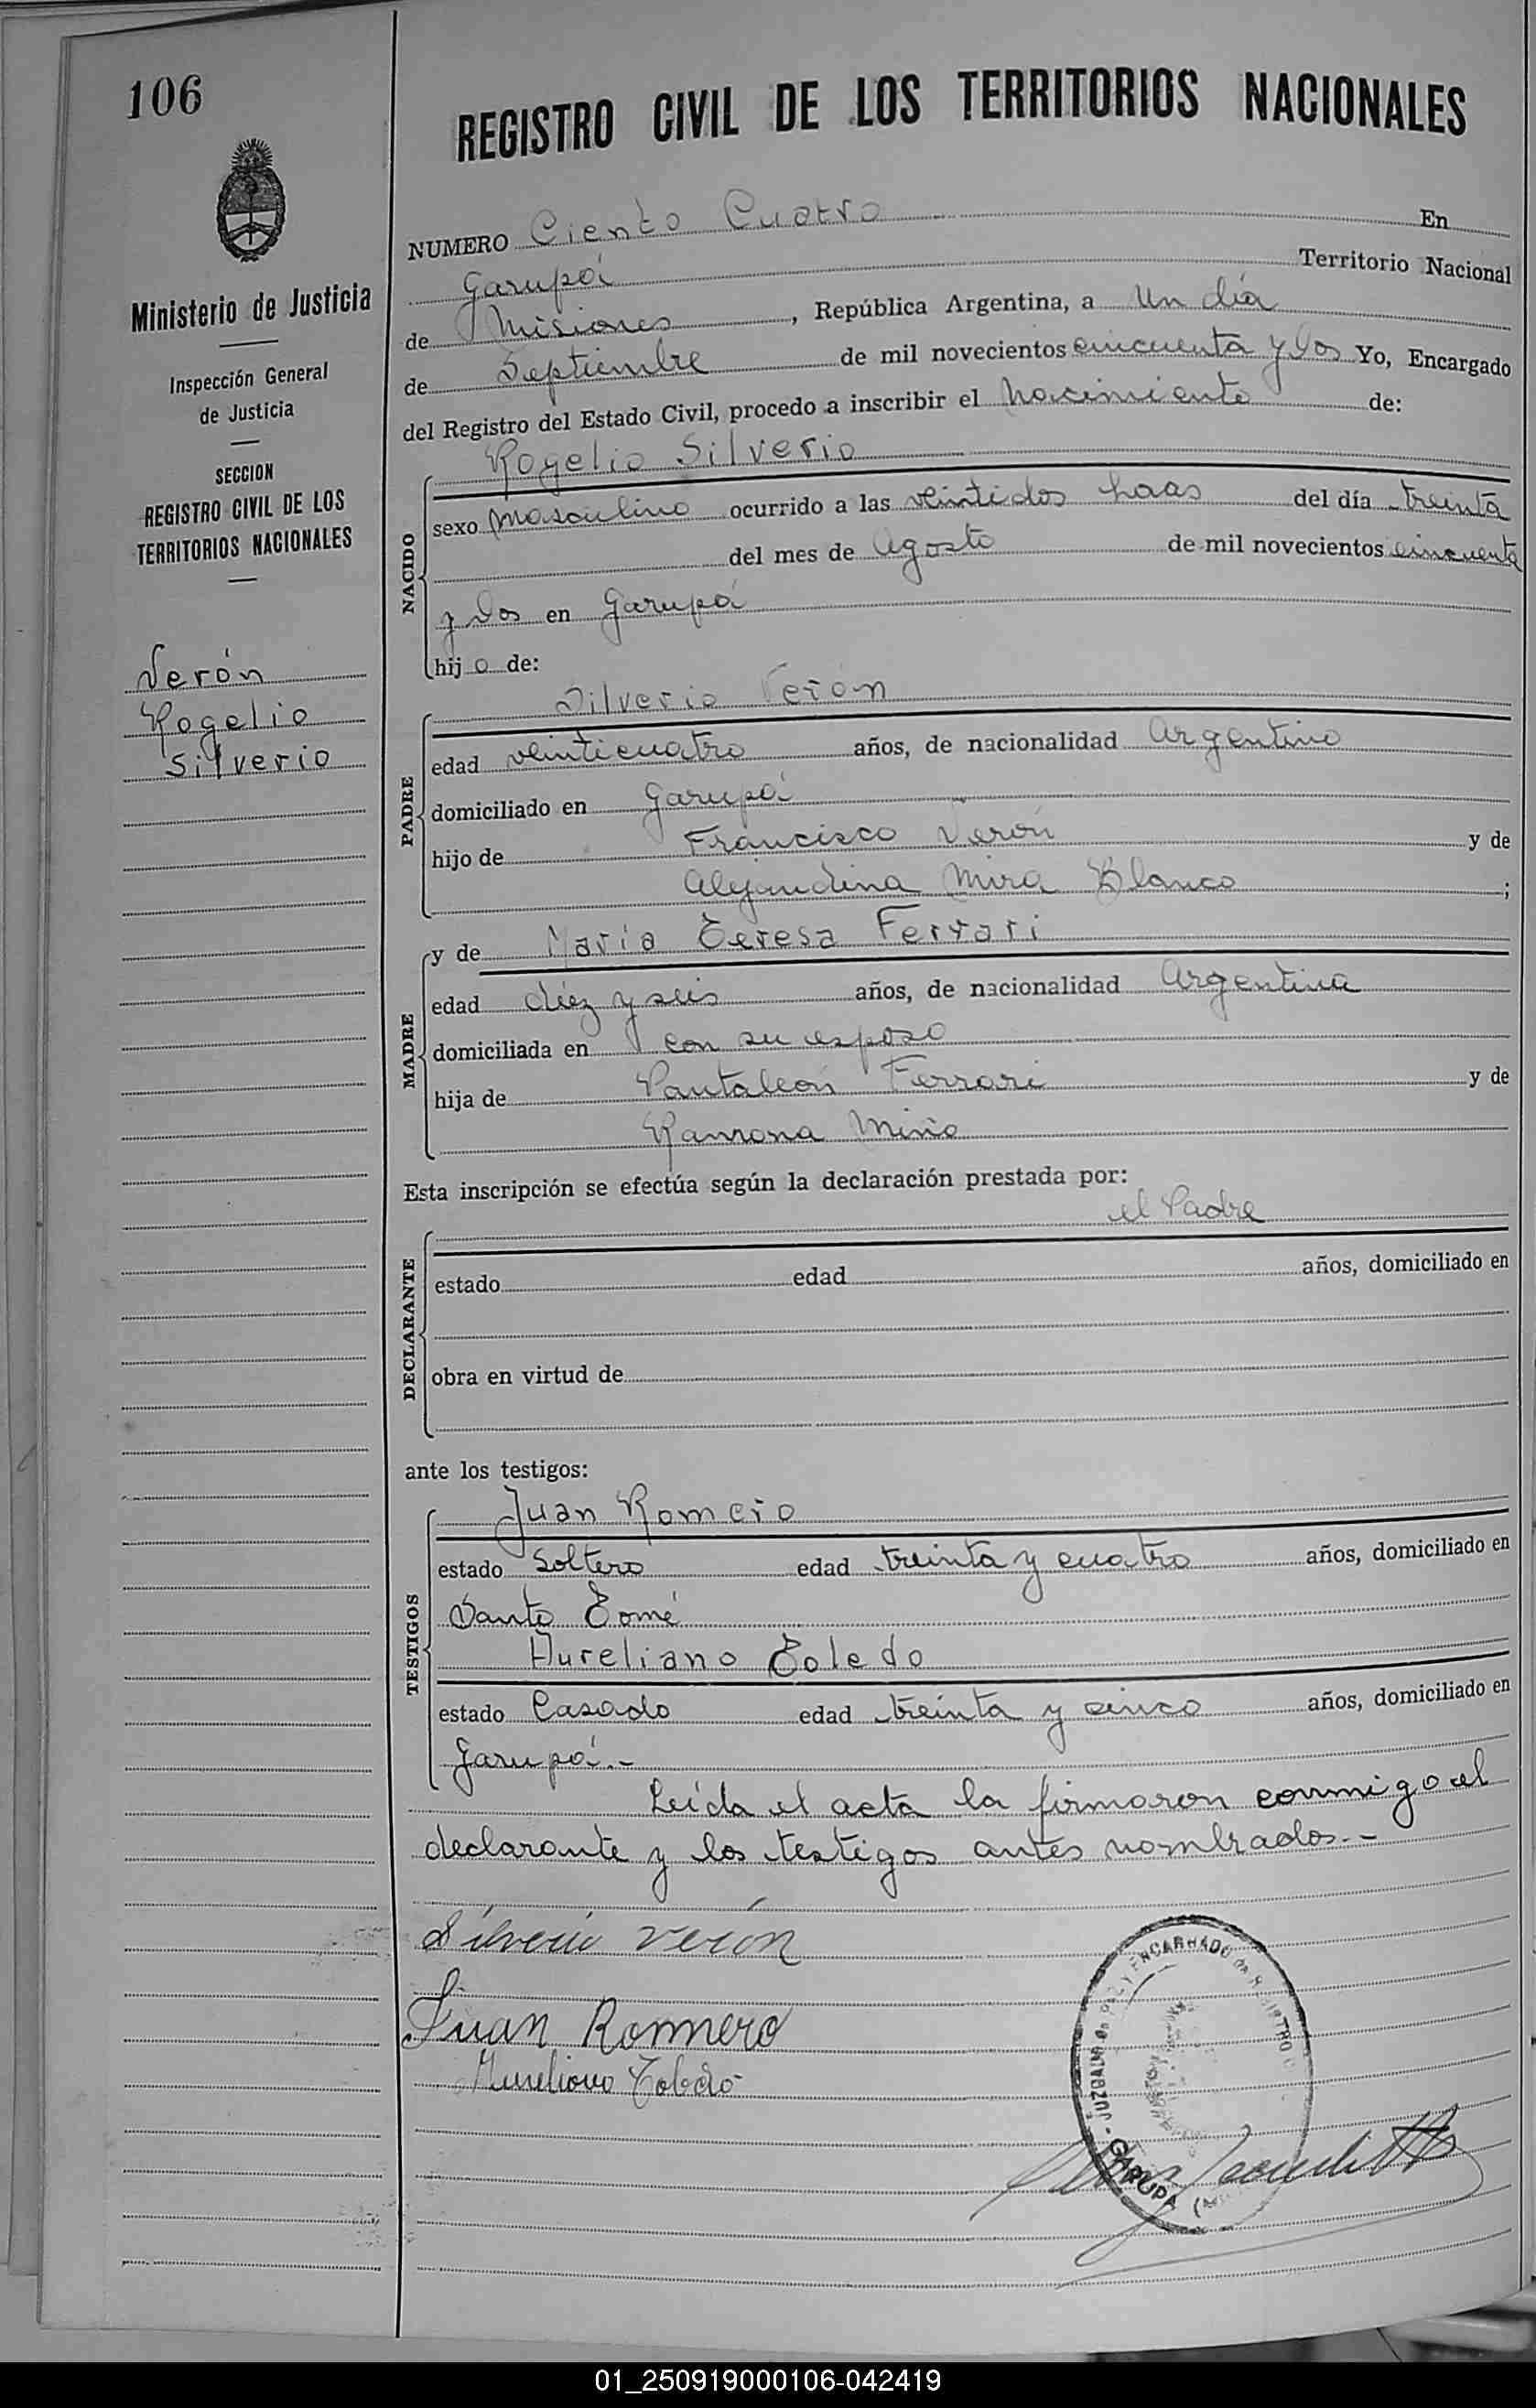 106
REGISTRO CIVIL DE LOS TERRITORIOS NACIONALES
Ministerio de Justicia
Inspección General
de Justicia
SECCION
REGISTRO CIVIL DE LOS
TERRITORIOS NACIONALES
Verón
Rogelio
Silverio
NUMERO Ciento Cuatro En
Garupá Territorio Nacional
de Misiones, República Argentina, a Un día
de Septiembre de mil novecientos cincuenta y dos Yo, Encargado
del Registro del Estado Civil, procedo a inscribir el nacimiento de:
NACIDO
Rogelio Silverio
sexo masculino ocurrido a las veintidos horas del día treinta
del mes de Agosto de mil novecientos cincuenta
y dos en Garupá
hijo de:
PADRE
Silverio Verón
edad veinticuatro años, de nacionalidad Argentino
domiciliado en Garupá
hijo de Francisco Verón y de
Alejandina Mira Blanco ;
MADRE
y de María Teresa Ferrari
edad diez y seis años, de nacionalidad Argentina
domiciliada en con su esposo
hija de Pantaleón Ferrari y de
Ramona Miño
Esta inscripción se efectúa según la declaración prestada por:
DECLARANTE
el Padre
estado edad años, domiciliado en
obra en virtud de
ante los testigos:
TESTIGOS
Juan Romero
estado Soltero edad treinta y cuatro años, domiciliado en
Santo Tomé
Aureliano Toledo
estado Casado edad treinta y cinco años, domiciliado en
Garupá.-
Leída el acta la firmaron conmigo el
declarante y los testigos antes nombrados.-
Silverio Verón
Juan Romero
Aureliano Toledo
JUZGADO DE PAZ Y ENCARGADO DEL REGISTRO
GARUPA
01_250919000106-042419